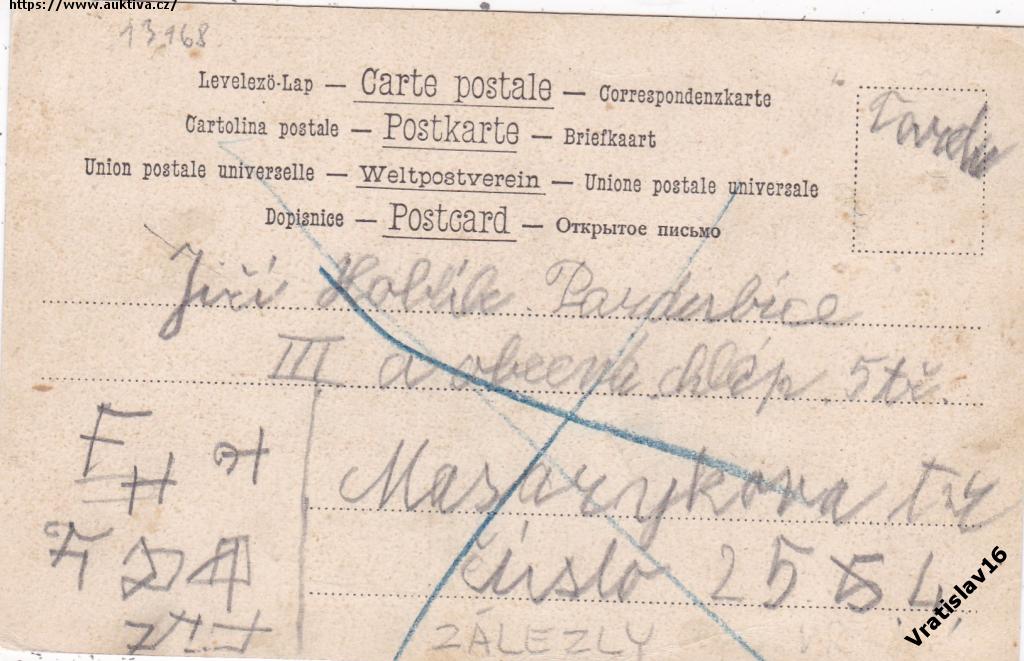 https://www.auktiva.cz/
13168
Levelezö-Lap — Carte postale — Correspondenzkarte
Cartolina postale — Postkarte — Briefkaart
Union postale universelle — Weltpostverein — Unione postale universale
Dopisnice — Postcard — Открытое письмо
Jiří Pardubice
III a obecná chlap. 5tř.
Masarykova tř
číslo 25
ZÁLEZLY
Vratislav16